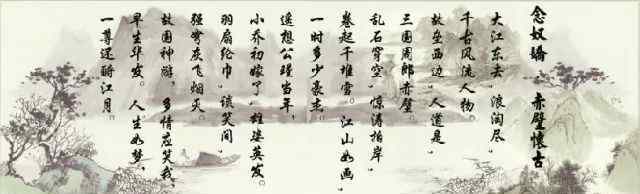 念奴嬌 赤壁懷古
大江东去,浪淘尽,
千古风流人物。
故垒西边,人道是,
三国周郎赤壁。
乱石穿空,惊涛拍岸,
卷起千堆雪。江山如画,
一时多少豪杰。
遥想公瑾当年,
小乔初嫁了,雄姿英发。
羽扇纶巾,谈笑间,
强弩灰飞烟灭。
故国神游,多情应笑我,
早生华发。人生如梦,
一尊还酹江月。